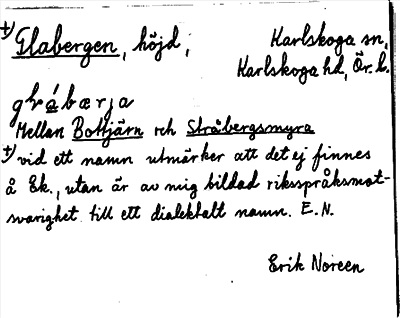 +) Glabergen, höjd, Karlskoga sn,
Karlskoga hd, Ör. l.
glábærja
Mellan Bottjärn och Stråbergsmyra
+) vid ett namn utmärker att det ej finnes
å Ek., utan är av mig bildad riksspråksmot-
svarighet till ett dialektalt namn. E.N.
Erik Noreen